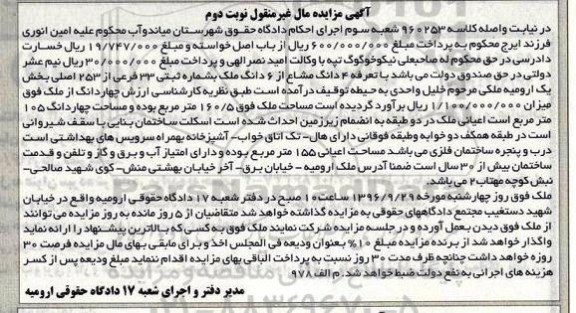 آگهی مزایده مال غیرمنقول نوبت دوم
در نیابت واصله کلاسه ۹۶۰۲۵۳ شعبه سوم اجرای احکام دادگاه حقوق شهرستان میاندوآب محکوم علیه امین انوری
فرزند ایرج محکوم به پرداخت مبلغ ۶۰۰/۰۰۰/۰۰۰ ریال از باب اصل خواسته و مبلغ ۱۹/۷۴۷/۰۰۰ ریال خسارت
دادرسی در حق محکوم له صاحبعلی نیکوخوگوگ تپه با وکالت امید نصرالهی و پرداخت مبلغ ۳۰/۰۰۰/۰۰۰ ریال نیم عشر
دولتی در حق صندوق دولت می باشد با تعرفه ۴ دانگ مشاع از ۶ دانگ ملک بشماره ثبتی ۳۳ فرعی از ۲۵۳ اصلی بخش
یک ارومیه ملکی مرحوم خلیل واحدی به حیطه توقیف درآمده است طبق نظریه کارشناسی ارزش چهاردانگ از ملک فوق
میزان ۱/۱۰۰/۰۰۰/۰۰۰ ریال برآورد گردیده است مساحت ملک فوق ۱۶۰/۵ متر مربع بوده و مساحت چهاردانگ ۱۰۵
متر مربع است اعیانی ملک در دو طبقه به انضمام زیرزمین احداث شده است اسکلت ساختمان بنایی با سقف شیروانی
است در طبقه همکف دو خوابه وطبقه فوقانی دارای هال- تک اتاق خواب- آشپزخانه بهمراه سرویس های بهداشتی است
درب و پنجره ساختمان فلزی می باشد مساحت اعیانی ۱۵۵ متر مربع بوده و دارای امتیاز آب و برق و گاز و تلفن و قدمت
ساختمان بیش از ۳۰ سال است ضمنا آدرس ملک ارومیه - خیابان برق- آخر خیابان بهشتی منش- کوی شهید صالحی-
نبش کوچه مهتاب۲ می باشد.
ملک فوق روز چهارشنبه مورخه ۱۳۹۶/۹/۲۹ ساعت ۱۰ صبح در دفتر شعبه ۱۷ دادگاه حقوقی ارومیه واقع در خیابان
شهید دستغیب مجتمع دادگاههای حقوقی به مزایده گذاشته خواهد شد متقاضیان از ۵ روز مانده به روز مزایده می توانند
از ملک فوق دیدن بعمل آورده و درجلسه مزایده شرکت نمایند ملک فوق به کسی که بالاترین پیشنهاد را ارائه نماید
واگذار خواهد شد از برنده مزایده مبلغ ۱۰% بعنوان ودیعه فی المجلس اخذ و برای مابقی بهای مال مزایده فرصت ۳۰
روزه خواهد داشت چنانچه ظرف مدت ۳۰ روز نسبت به پرداخت الباقی بهای مزایده اقدام ننماید مبلغ ودیعه پس از کسر
هزینه های اجرائی به نفع دولت ضبط خواهد شد. م الف ۹۷۸
مدیر دفتر و اجرای شعبه ۱۷ دادگاه حقوقی ارومیه